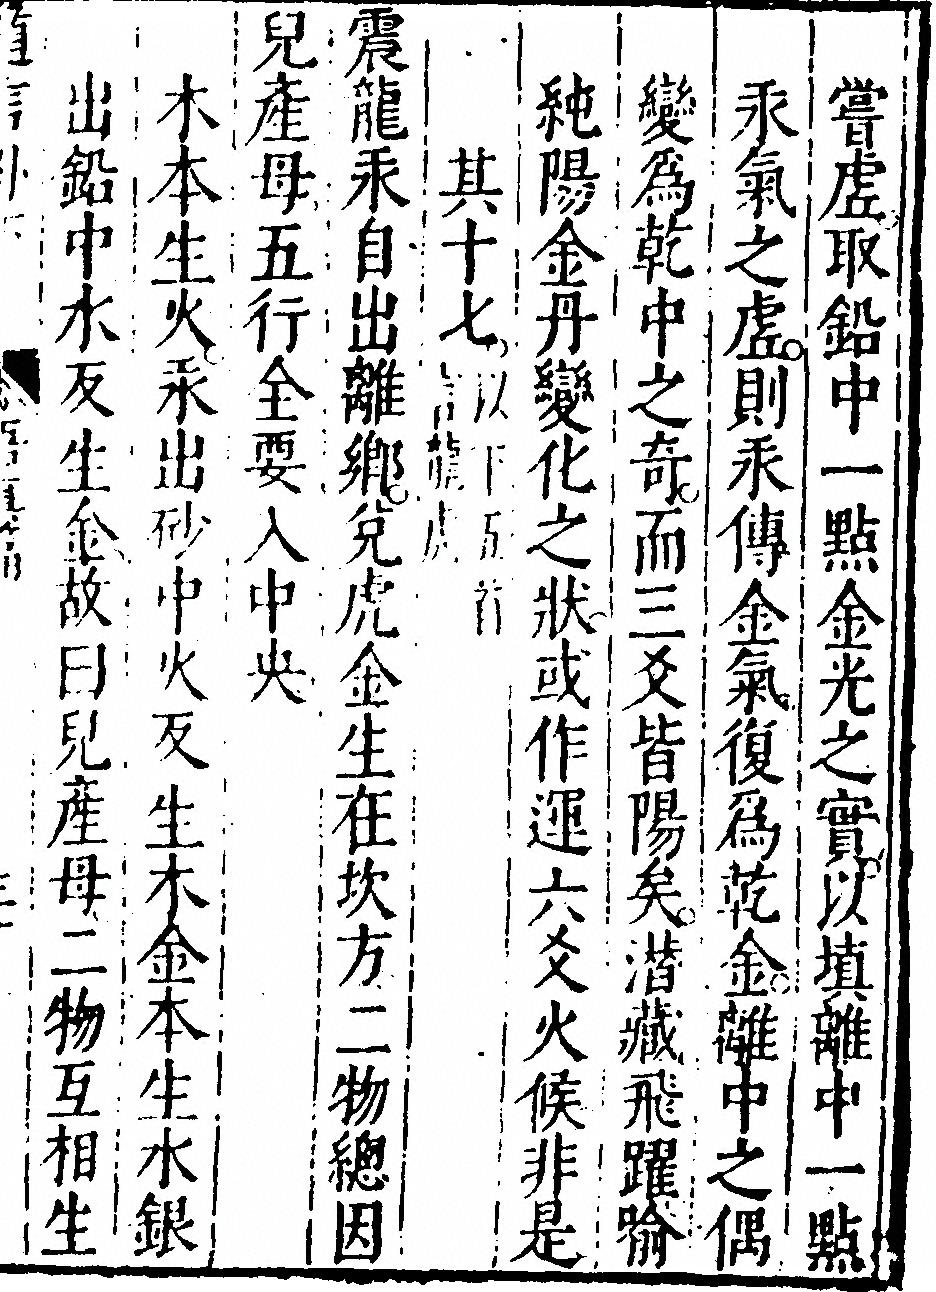 嘗虛取鉛中一點金光之實以填離中一點
汞氣之虛則汞傳金氣復為乾金離中之偶
變為乾中之奇而三爻皆陽矣潛藏飛躍喻
純陽金丹變化之狀或作運六爻火候非是
其十七以下五首言龍虎
震龍汞自出離鄉兌虎金生在坎方二物總因
兒產母五行全要入中央
木本生火汞出砂中火反生木金本生水銀
出鉛中水反生金故曰兒產母二物互相生